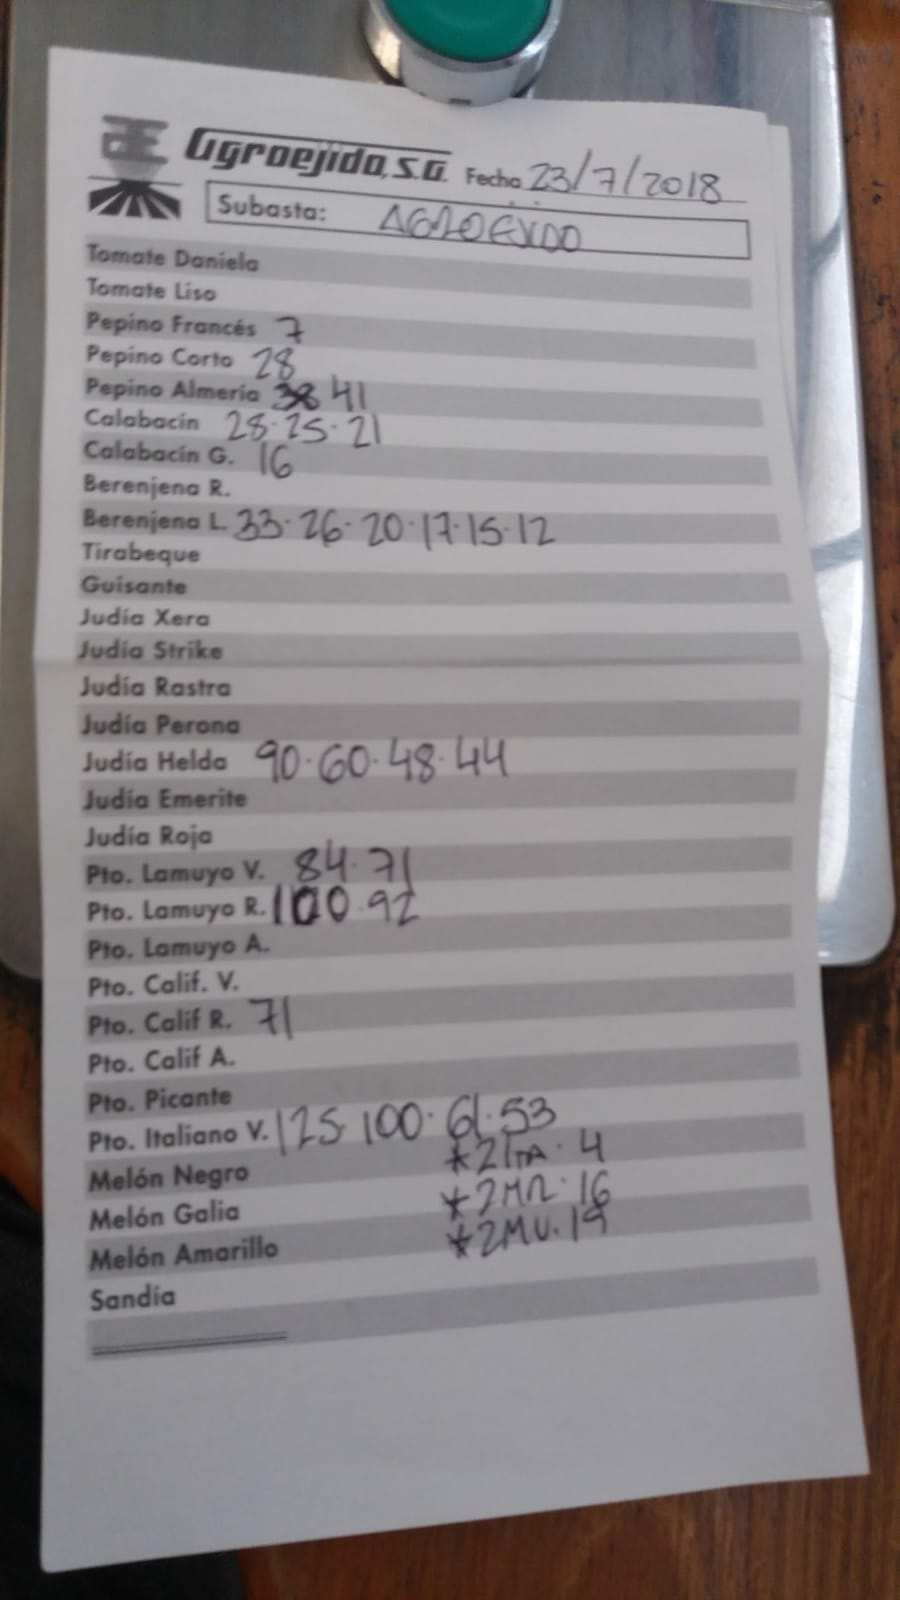 AE
Agroejido, S.A. Fecha 23/7/2018
Subasta: AGROEJIDO
Tomate Daniela
Tomate Liso
Pepino Francés 7
Pepino Corto 28
Pepino Almería 38 41
Calabacín 28·25·21
Calabacín G. 16
Berenjena R.
Berenjena L. 33·26·20·17·15·12
Tirabeque
Guisante
Judía Xera
Judía Strike
Judía Rastra
Judía Perona
Judía Helda 90·60·48·44
Judía Emerite
Judía Roja
Pto. Lamuyo V. 84·71
Pto. Lamuyo R. 100·92
Pto. Lamuyo A.
Pto. Calif. V.
Pto. Calif R. 71
Pto. Calif A.
Pto. Picante
Pto. Italiano V. 125·100·61·53
Melón Negro *2ITA·4
Melón Galia *2MR·16
Melón Amarillo *2MV·19
Sandía